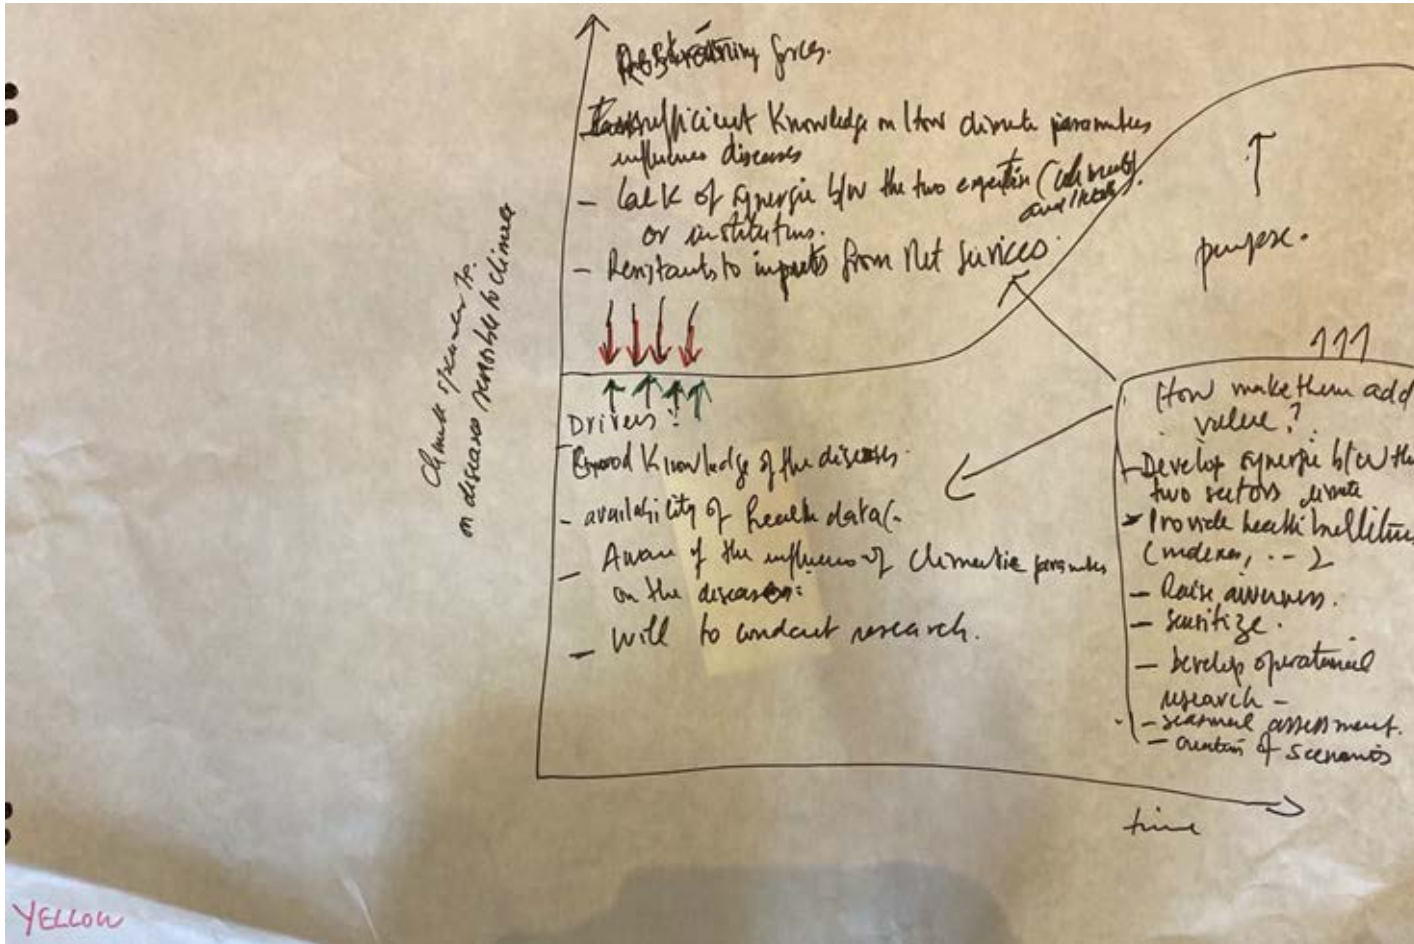 Restraining forces.
Insufficient Knowledge on How climate parameters
influences diseases
- lack of synergie b/w the two expertise (
or institutions.
- Resistants to inputs from Met Services.
purpose.
Drivers:
- Good Knowledge of the diseases.
- availability of health data(.
- Aware of the influence of climatic parameters
on the diseases:
- will to conduct research.
How make them add
value?
- Develop synergie b/w the
two sectors climate
- Provide health bulletins
(indexes, ...)
- Raise awareness.
- sensitize.
- Develop operational
research -
- seasonal assessment.
- creation of scenarios
time
on diseases sensible to climate
YELLOW